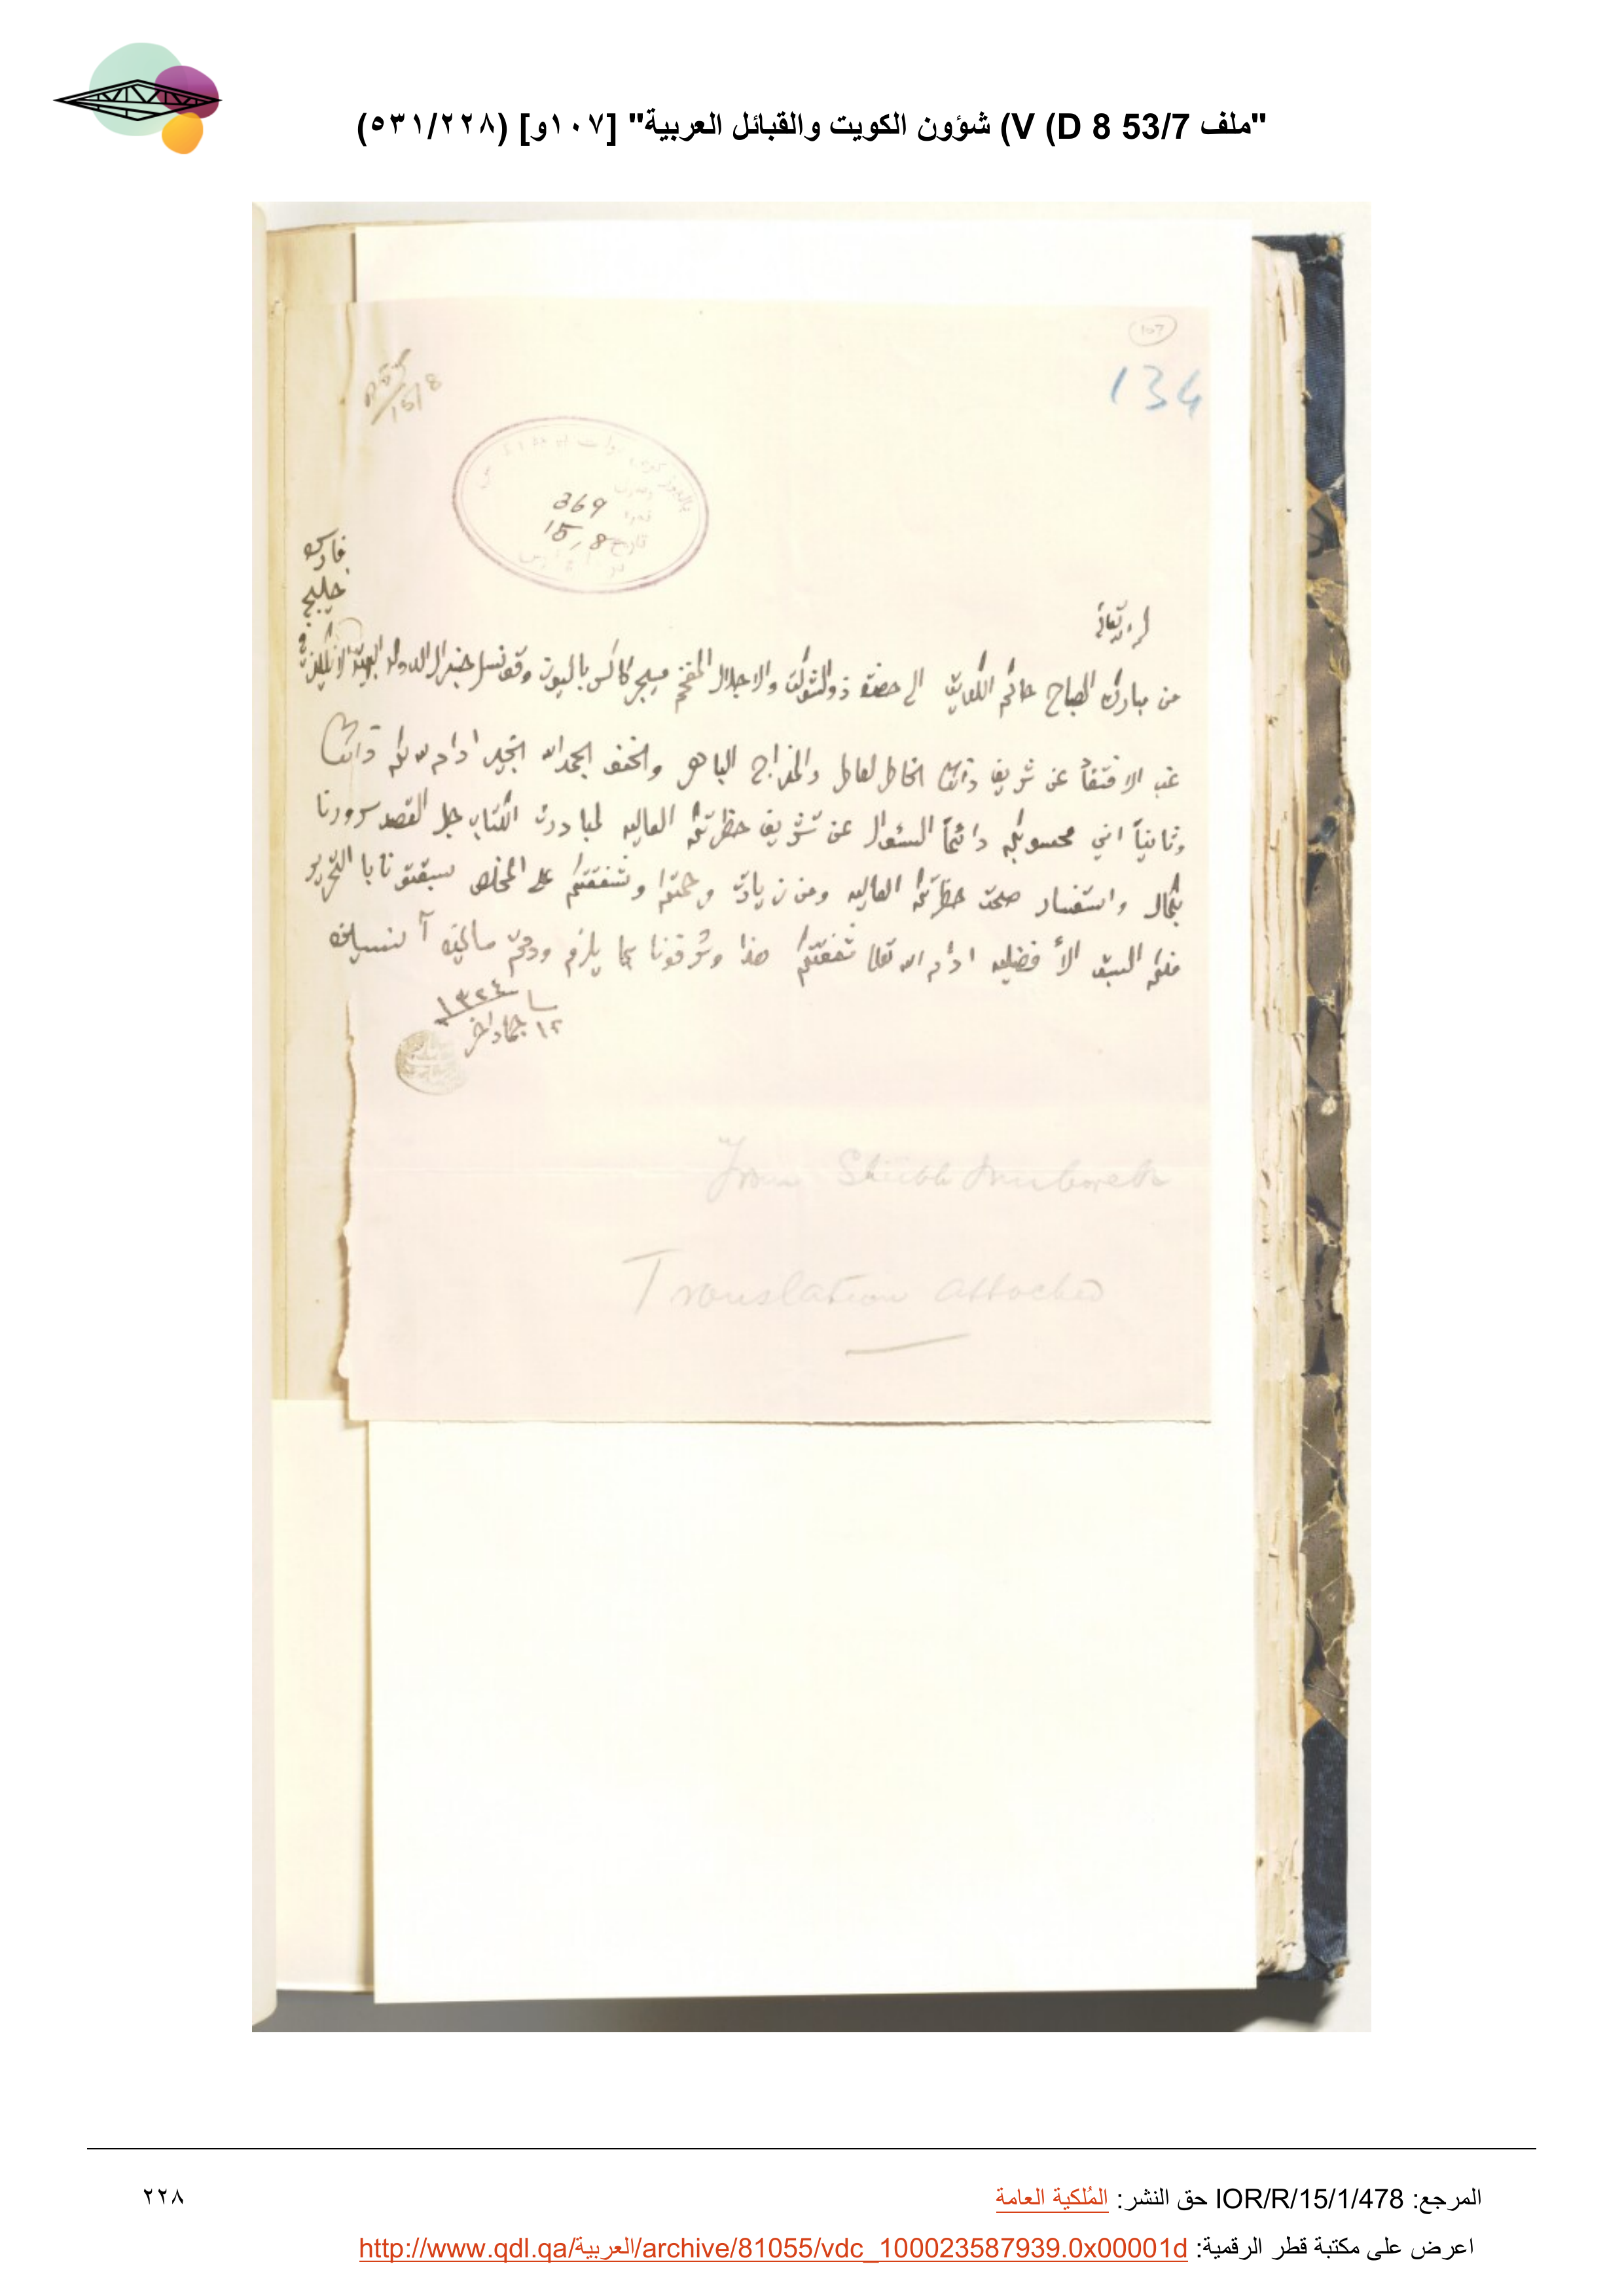 "ملف 53/7 D 8) V) شؤون الكويت والقبائل العربية" [١٠٧و] (٥٣١/٢٢٨)
107
134
15/8
369
تاريخ 15/8
فارس
خليج
من مبارك الصباح حاكم الكويت الى حضرة ذو الشوكت والاجلال المفخم ميجر كاكس باليوز وقونسل جنرال الدوله البهية الانكليزية في
غب الافتقاد عن شريف ذاتكم الخاطر العاطر والمزاج الباهر والمخلص بحمد الله بخير ادام الله لكم
وثانياً اني محسوبكم دائماً السؤال عن تشريف حظرتكم العاليه لمبادرت الكتاب جل القصد سرورنا
بكمال واستفسار صحت حظرتكم العاليه ومن زيادت وشفقتكم على المخلص سبقتونا بالتحرير
فلكم السبق الأفضليه ادام الله تعالى شفقتكم هذا وشرفونا بما يلزم ودمتم سالمين
١٢ جماد اخر ١٣٢٤
From Sheikh Mubarak
Translation attached
المرجع: IOR/R/15/1/478 حق النشر: المُلكية العامة
٢٢٨
اعرض على مكتبة قطر الرقمية: http://www.qdl.qa/العربية/archive/81055/vdc_100023587939.0x00001d